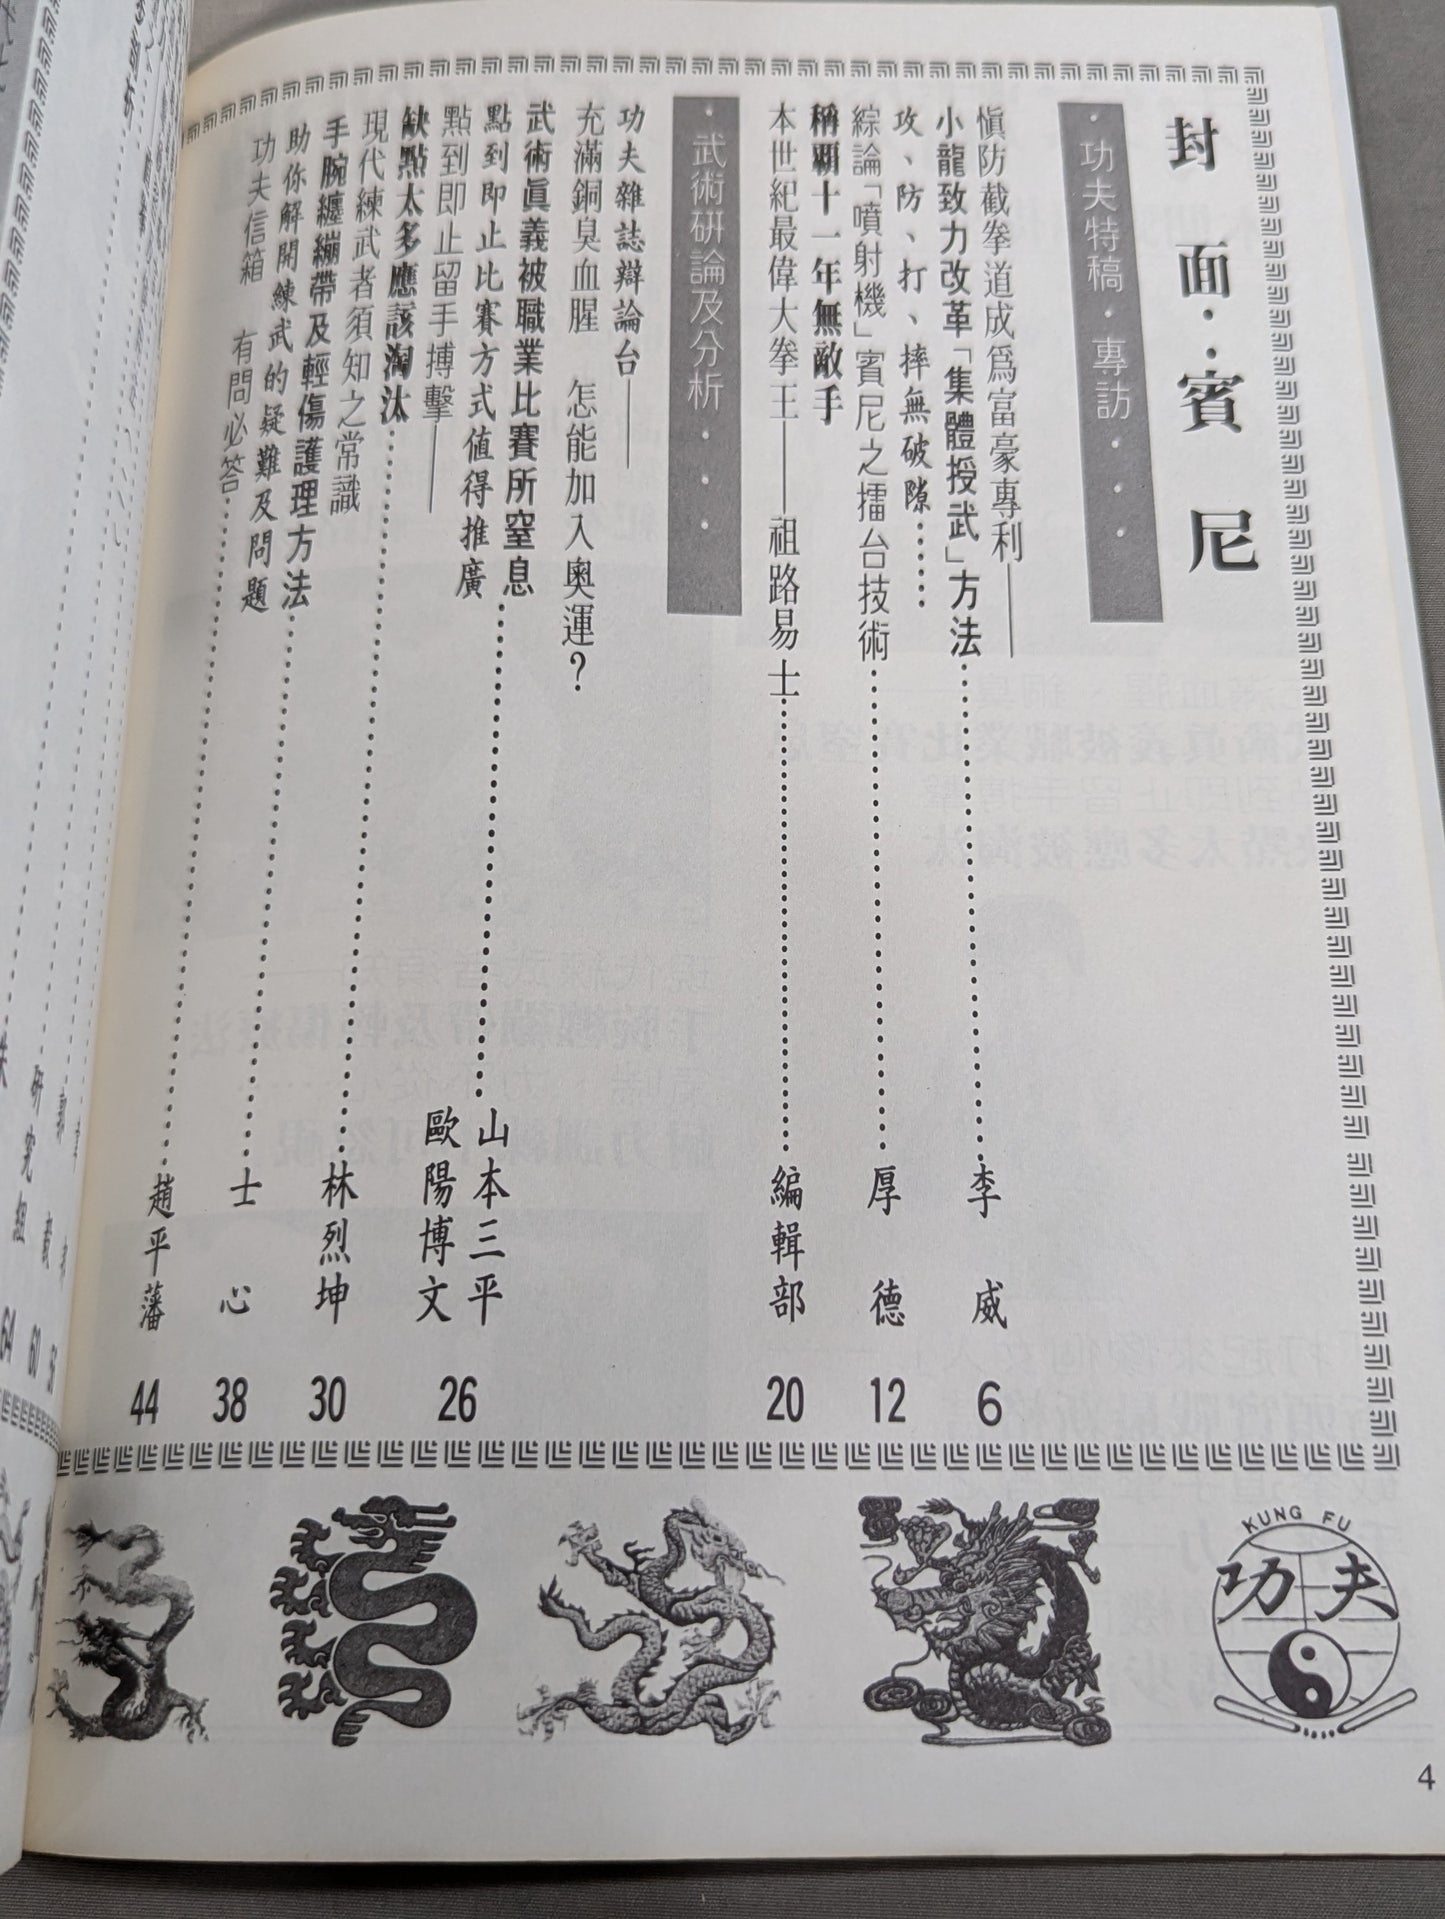 封面‧：賓尼
‧功夫特稿‧專訪‧‧‧
慎防截拳道成爲富豪專利——
小龍致力改革「集體授武」方法……李威 6
攻、防、打、摔無破隙……
綜論「噴射機」賓尼之擂台技術……厚德 12
稱覇十一年無敵手
本世紀最偉大拳王——祖路易士……編輯部 20
‧武術研論及分析‧‧‧
功夫雜誌辯論台——
充滿銅臭血腥　怎能加入奧運？
武術眞義被職業比賽所窒息……山本三平
點到即止比賽方式值得推廣
點到即止留手搏擊——
缺點太多應該淘汰……歐陽博文 26
現代練武者須知之常識
手腕纏繃帶及輕傷護理方法……林烈坤 30
助你解開練武的疑難及問題
功夫信箱　有問必答……士心 38
趙平藩 44
KUNG FU
功夫
4
研究組 60
64